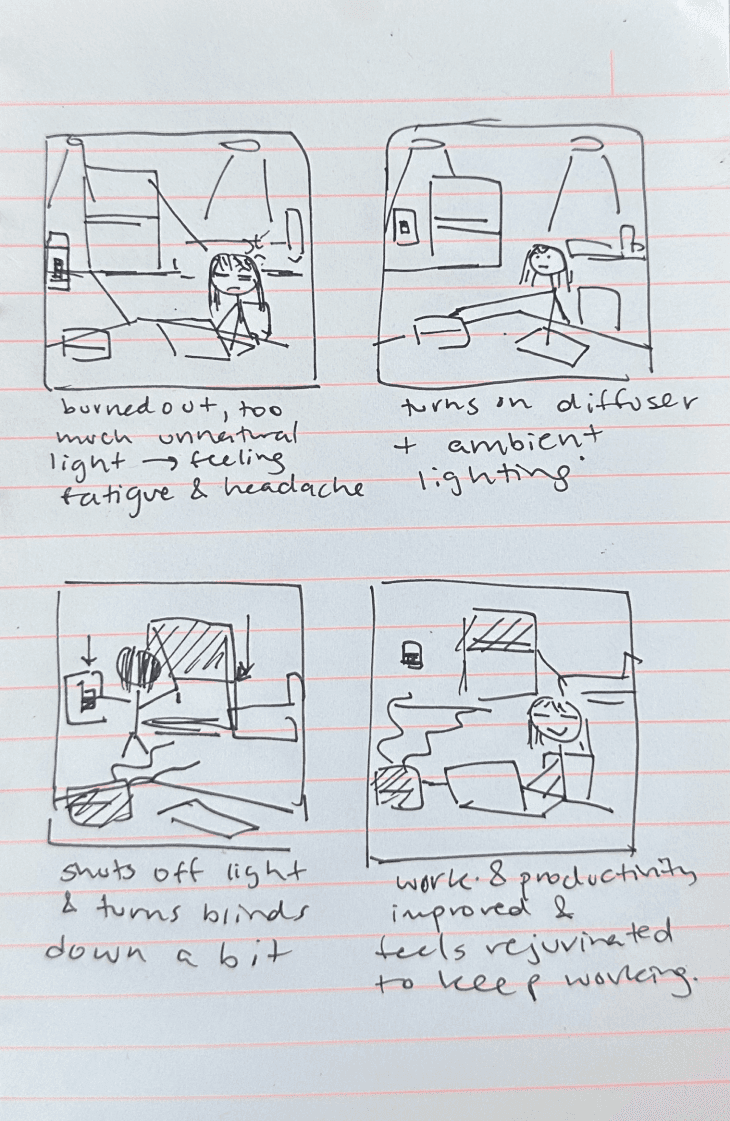 burned out, too
much unnatural
light → feeling
fatigue & headache
turns on diffuser
+ ambient
lighting.
shuts off light
& turns blinds
down a bit
work & productivity
improved &
feels rejuvinated
to keep working.